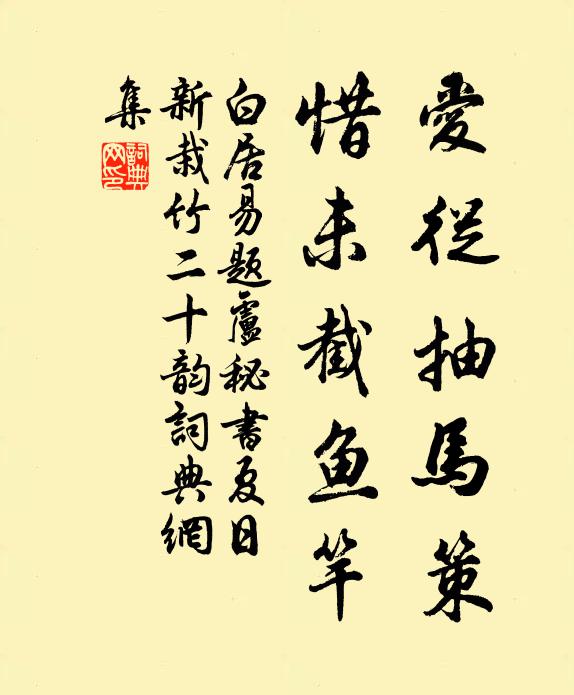 愛從抽馬策
惜未截魚竿
白居易題盧秘書夏日
新栽竹二十韵詞典網
集
詞典網印